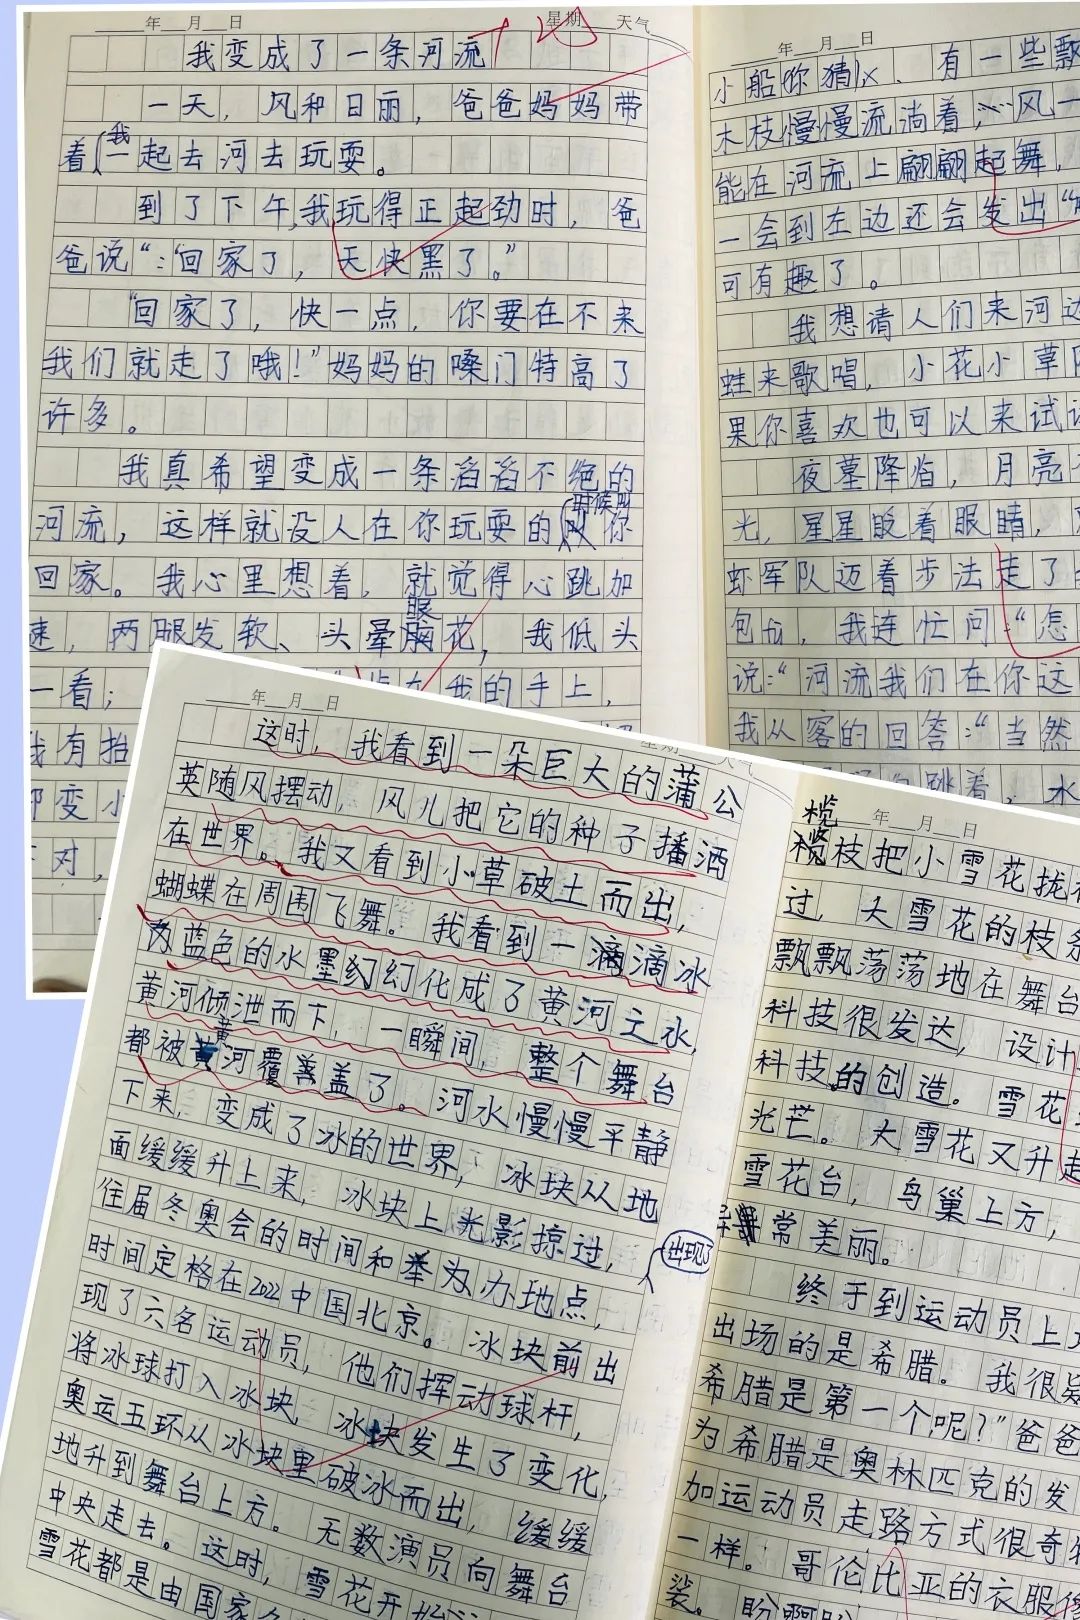 年 月 日 星期 天气
我变成了一条河流
一天，风和日丽，爸爸妈妈带
着我一起去河去玩耍。
到了下午，我玩得正起劲时，爸
爸说“：“回家了，天快黑了。”
“回家了，快一点，你要在不来
我们就走了哦！”妈妈的嗓门特高了
许多。
我真希望变成一条滔滔不绝的
河流，这样就没人在你玩耍的时候叫你
回家。我心里想着，就觉得心跳加
速，两腿发软、头晕眼花，我低头
一看；
我的手上，
我有抬
都变小
不对，
年 月 日
小船你猜
木枝慢慢流淌着，风一
能在河流上翩翩起舞，
一会到左边还会发出“
可有趣了。
我想请人们来河边
蛙来歌唱，小花小草
果你喜欢也可以来试试
夜墓降临，月亮
光，星星眨着眼睛，
虾军队迈着步法走了
包fu，我连忙问：“怎
说：“河流我们在你这
我从容的回答：“当然
跳着，水
年 月 日
这时，我看到一朵巨大的蒲公
英随风摆动，风儿把它的种子播洒
在世界。我又看到小草破土而出，
蝴蝶在周围飞舞。我看到一滴滴冰
蓝色的水墨幻化成了黄河之水，
黄河倾泄而下，一瞬间，整个舞台
都被黄河覆盖了。河水慢慢平静
下来，变成了冰的世界，冰块从地
面缓缓升上来，冰块上光影掠过，
住届冬奥会的时间和举办地点，
出现了
时间定格在2022中国北京。冰块前出
现了六名运动员，他们挥动球杆，
将冰球打入冰块，冰块发生了变化，
奥运五环从冰块里破冰而出，缓缓
地升到舞台上方。无数演员向舞台
中央走去。这时，雪花开始
雪花都是由国家
年 月 日
榄枝把小雪花拢
过，大雪花的枝条
飘飘荡荡地在舞台
科技很发达，设计
科技的创造。雪花
光芒。大雪花又升起
雪花台，鸟巢上方，
异常美丽。
终于到运动员上
出场的是希腊。我很疑
希腊是第一个呢？”爸爸
为希腊是奥林匹克的发
加运动员走路方式很奇特
一样。哥伦比亚的衣服
裟。盼啊盼